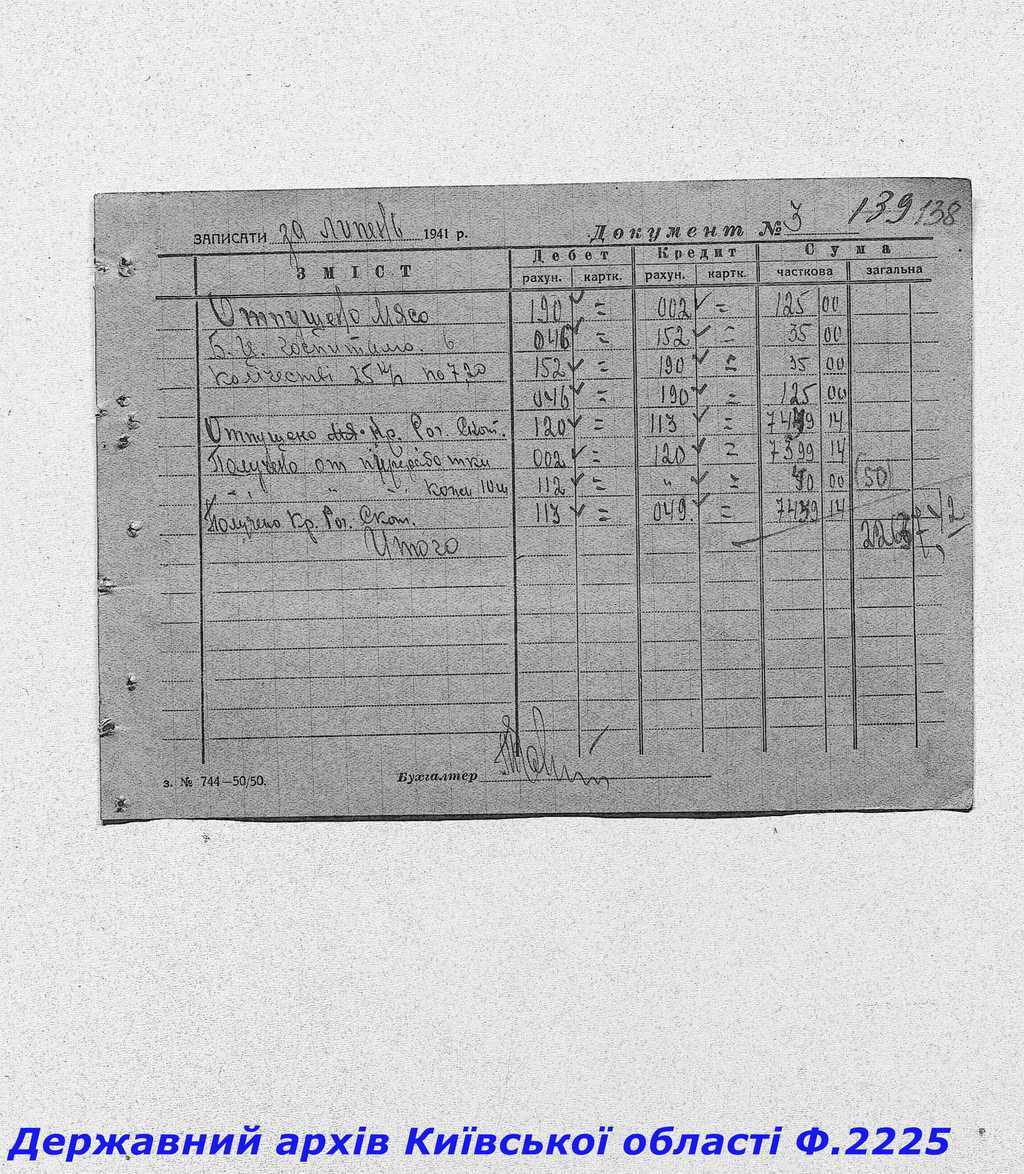 139 138
ЗАПИСАТИ за липень 1941 р. Документ № 3
ЗМІСТ Дебет Кредит Сума
рахун. картк. рахун. картк. часткова загальна
Отпущено Мясо 190 = 002 = 125 00
046 = 152 = 35 00
количестві 25 по 7 20 152 = 190 = 35 00
046 = 190 = 125 00
Отпущено Кр. Рог. Скот. 120 = 113 = 14
Получено от переработки 002 = 120 = 7399 14
" " " Кожи 10 112 = " = 00 (50)
Получено Кр. Рог. Скот. 113 = 049. = 7439 14
Итого
Бухгалтер
з. № 744—50/50.
Державний архів Київської області Ф.2225